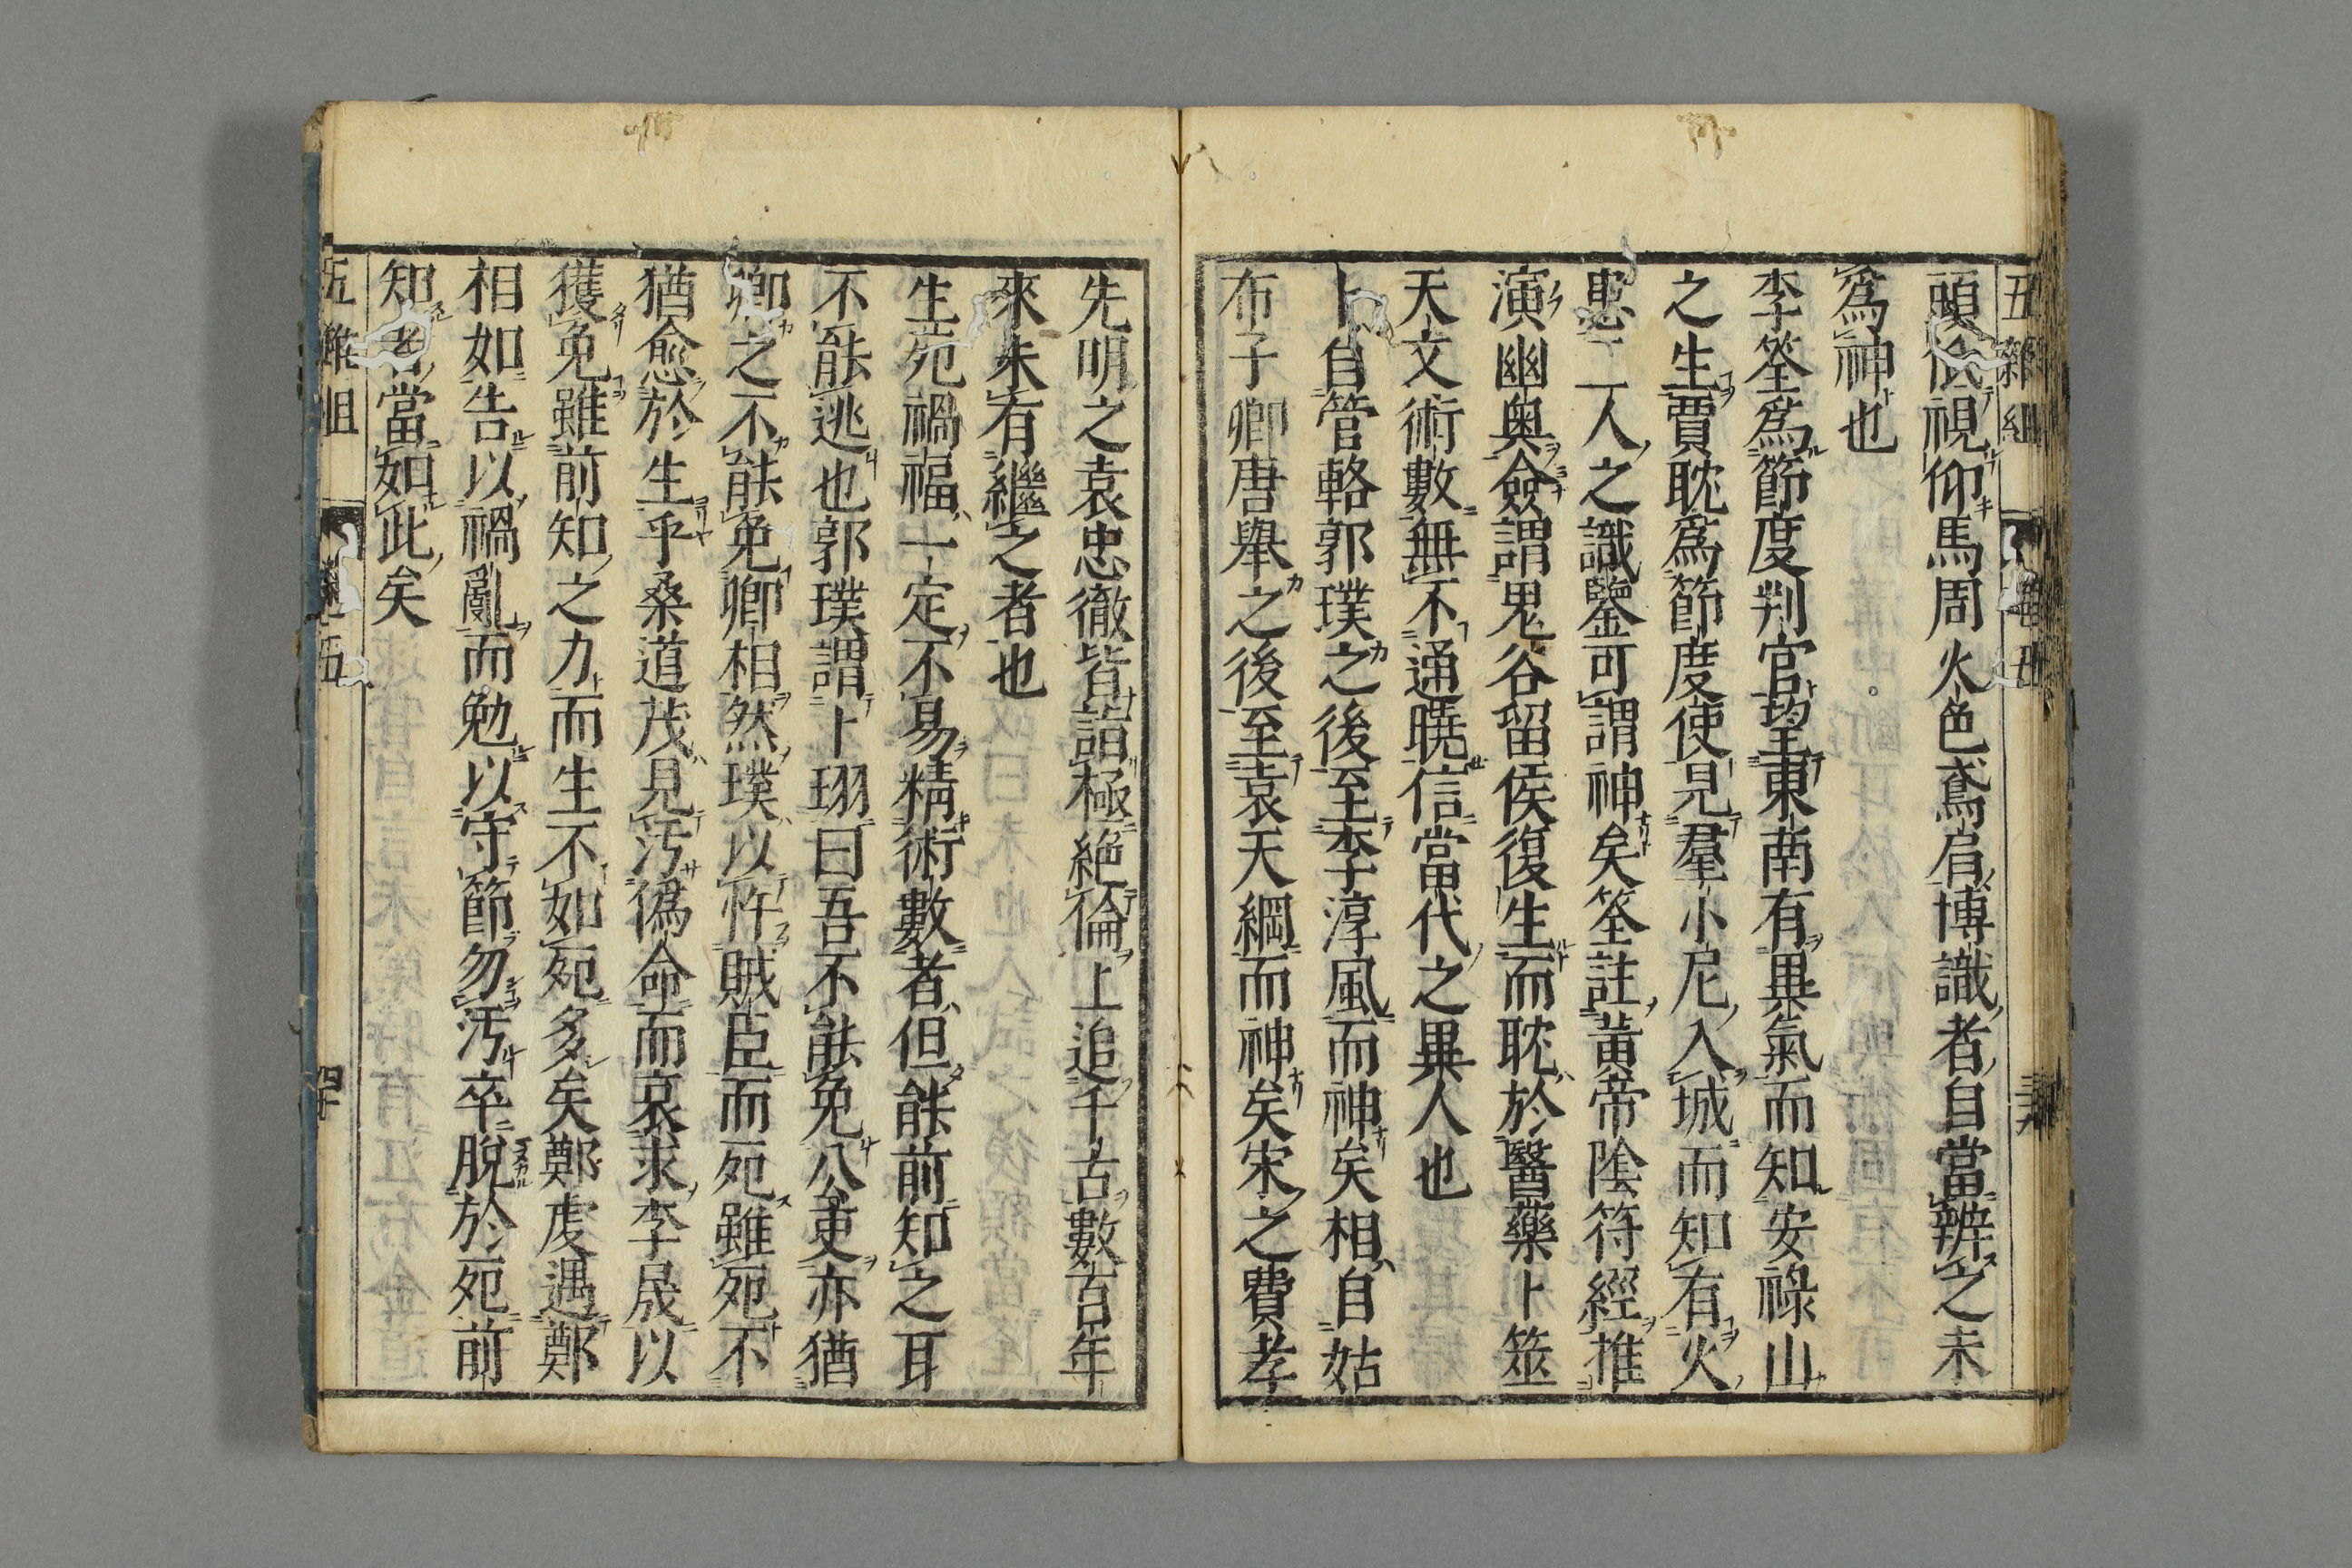 五雜組
卷五
三十九
頭低視仰馬周火色鳶肩博識者自當辨之未
爲神也
李筌爲節度判官望東南有異氣而知安祿山
之生賈耽爲節度使見羣小尼入城而知有火
患二人之識鑒可謂神矣筌註黃帝陰符經推
演幽奧僉謂鬼谷留侯復生而耽於醫藥卜筮
天文術數無不通曉信當代之異人也
卜自管輅郭璞之後至李淳風而神矣相自姑
布子卿唐舉之後至袁天綱而神矣宋之費孝
先明之袁忠徹皆詣極絶倫上追千古數百年
來未有繼之者也
生死禍福一定不易精術數者但能前知之耳
不能逃也郭璞謂卜珝曰吾不能免公吏亦猶
卿之不能免卿相然璞以忤賊臣而死雖死不
猶愈於生乎桑道茂見汚僞命而哀求李晟以
獲免雖前知之力而生不如死多矣鄭虔遇鄭
相如告以禍亂而勉以守節勿汚卒脫於死前
知者當如此矣
五雜組
卷五
四十